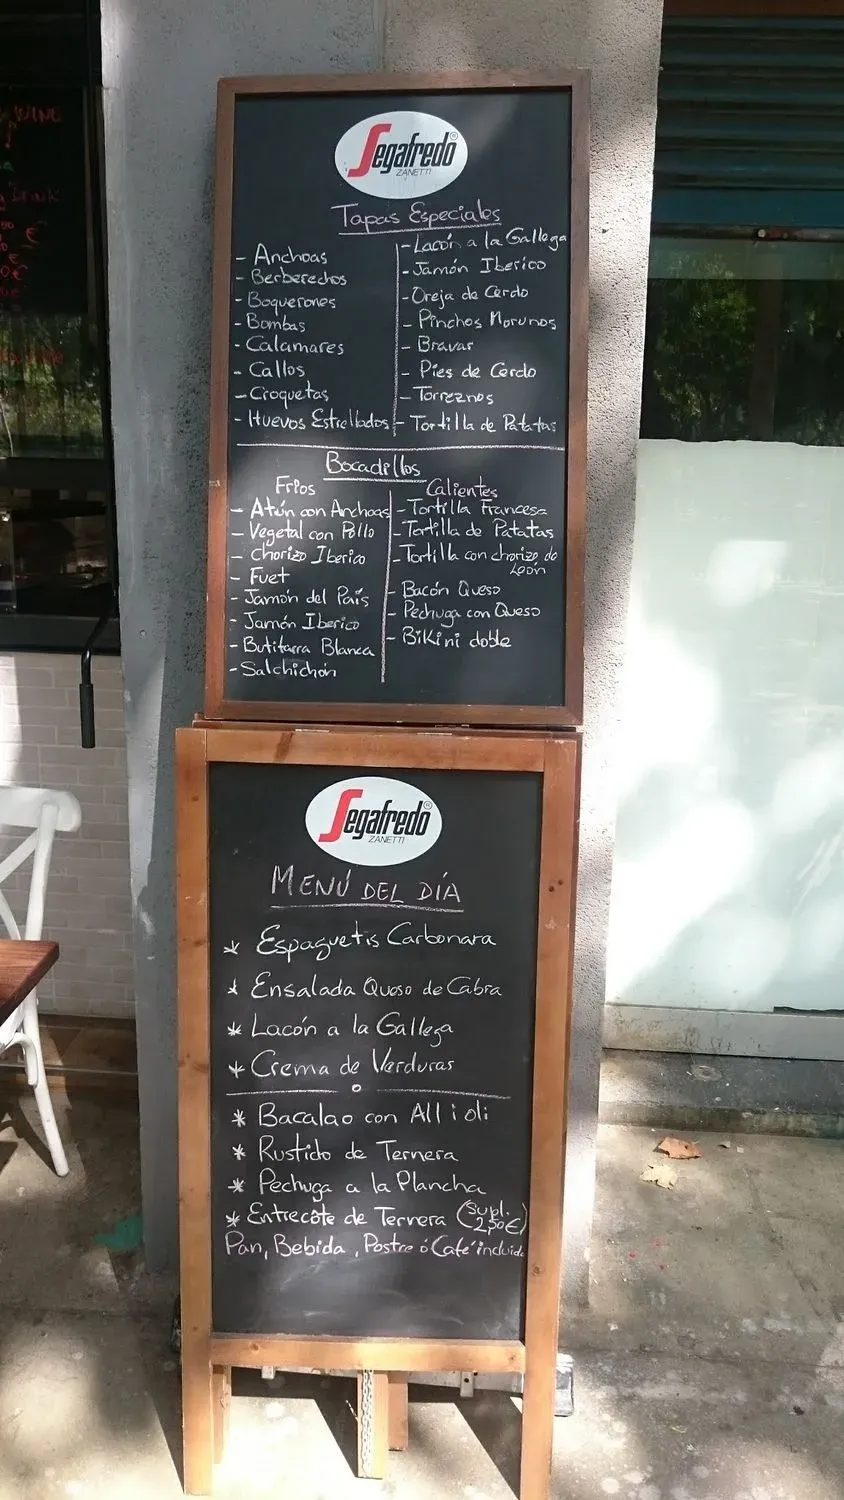 WINE
Segafredo®
ZANETTI
Tapas Especiales
- Anchoas
- Berberechos
- Boquerones
- Bombas
- Calamares
- Callos
- Croquetas
- Huevos Estrellados
- Lacón a la Gallega
- Jamón Iberico
- Oreja de Cerdo
- Pinchos Morunos
- Bravas
- Pies de Cerdo
- Torreznos
- Tortilla de Patatas
Bocadillos
Frios
- Atún con Anchoas
- Vegetal con Pollo
- Chorizo Iberico
- Fuet
- Jamón del País
- Jamón Iberico
- Butifarra Blanca
- Salchichón
Calientes
- Tortilla Francesa
- Tortilla de Patatas
- Tortilla con chorizo de
León
- Bacón Queso
- Pechuga con Queso
- Bikini doble
Segafredo®
ZANETTI
MENÚ DEL DÍA
* Espaguetis Carbonara
* Ensalada Queso de Cabra
* Lacón a la Gallega
* Crema de Verduras
* Bacalao con All i oli
* Rustido de Ternera
* Pechuga a la Plancha
* Entrecôte de Ternera (Supl. 2,50€)
Pan, Bebida, Postre ó Café incluido